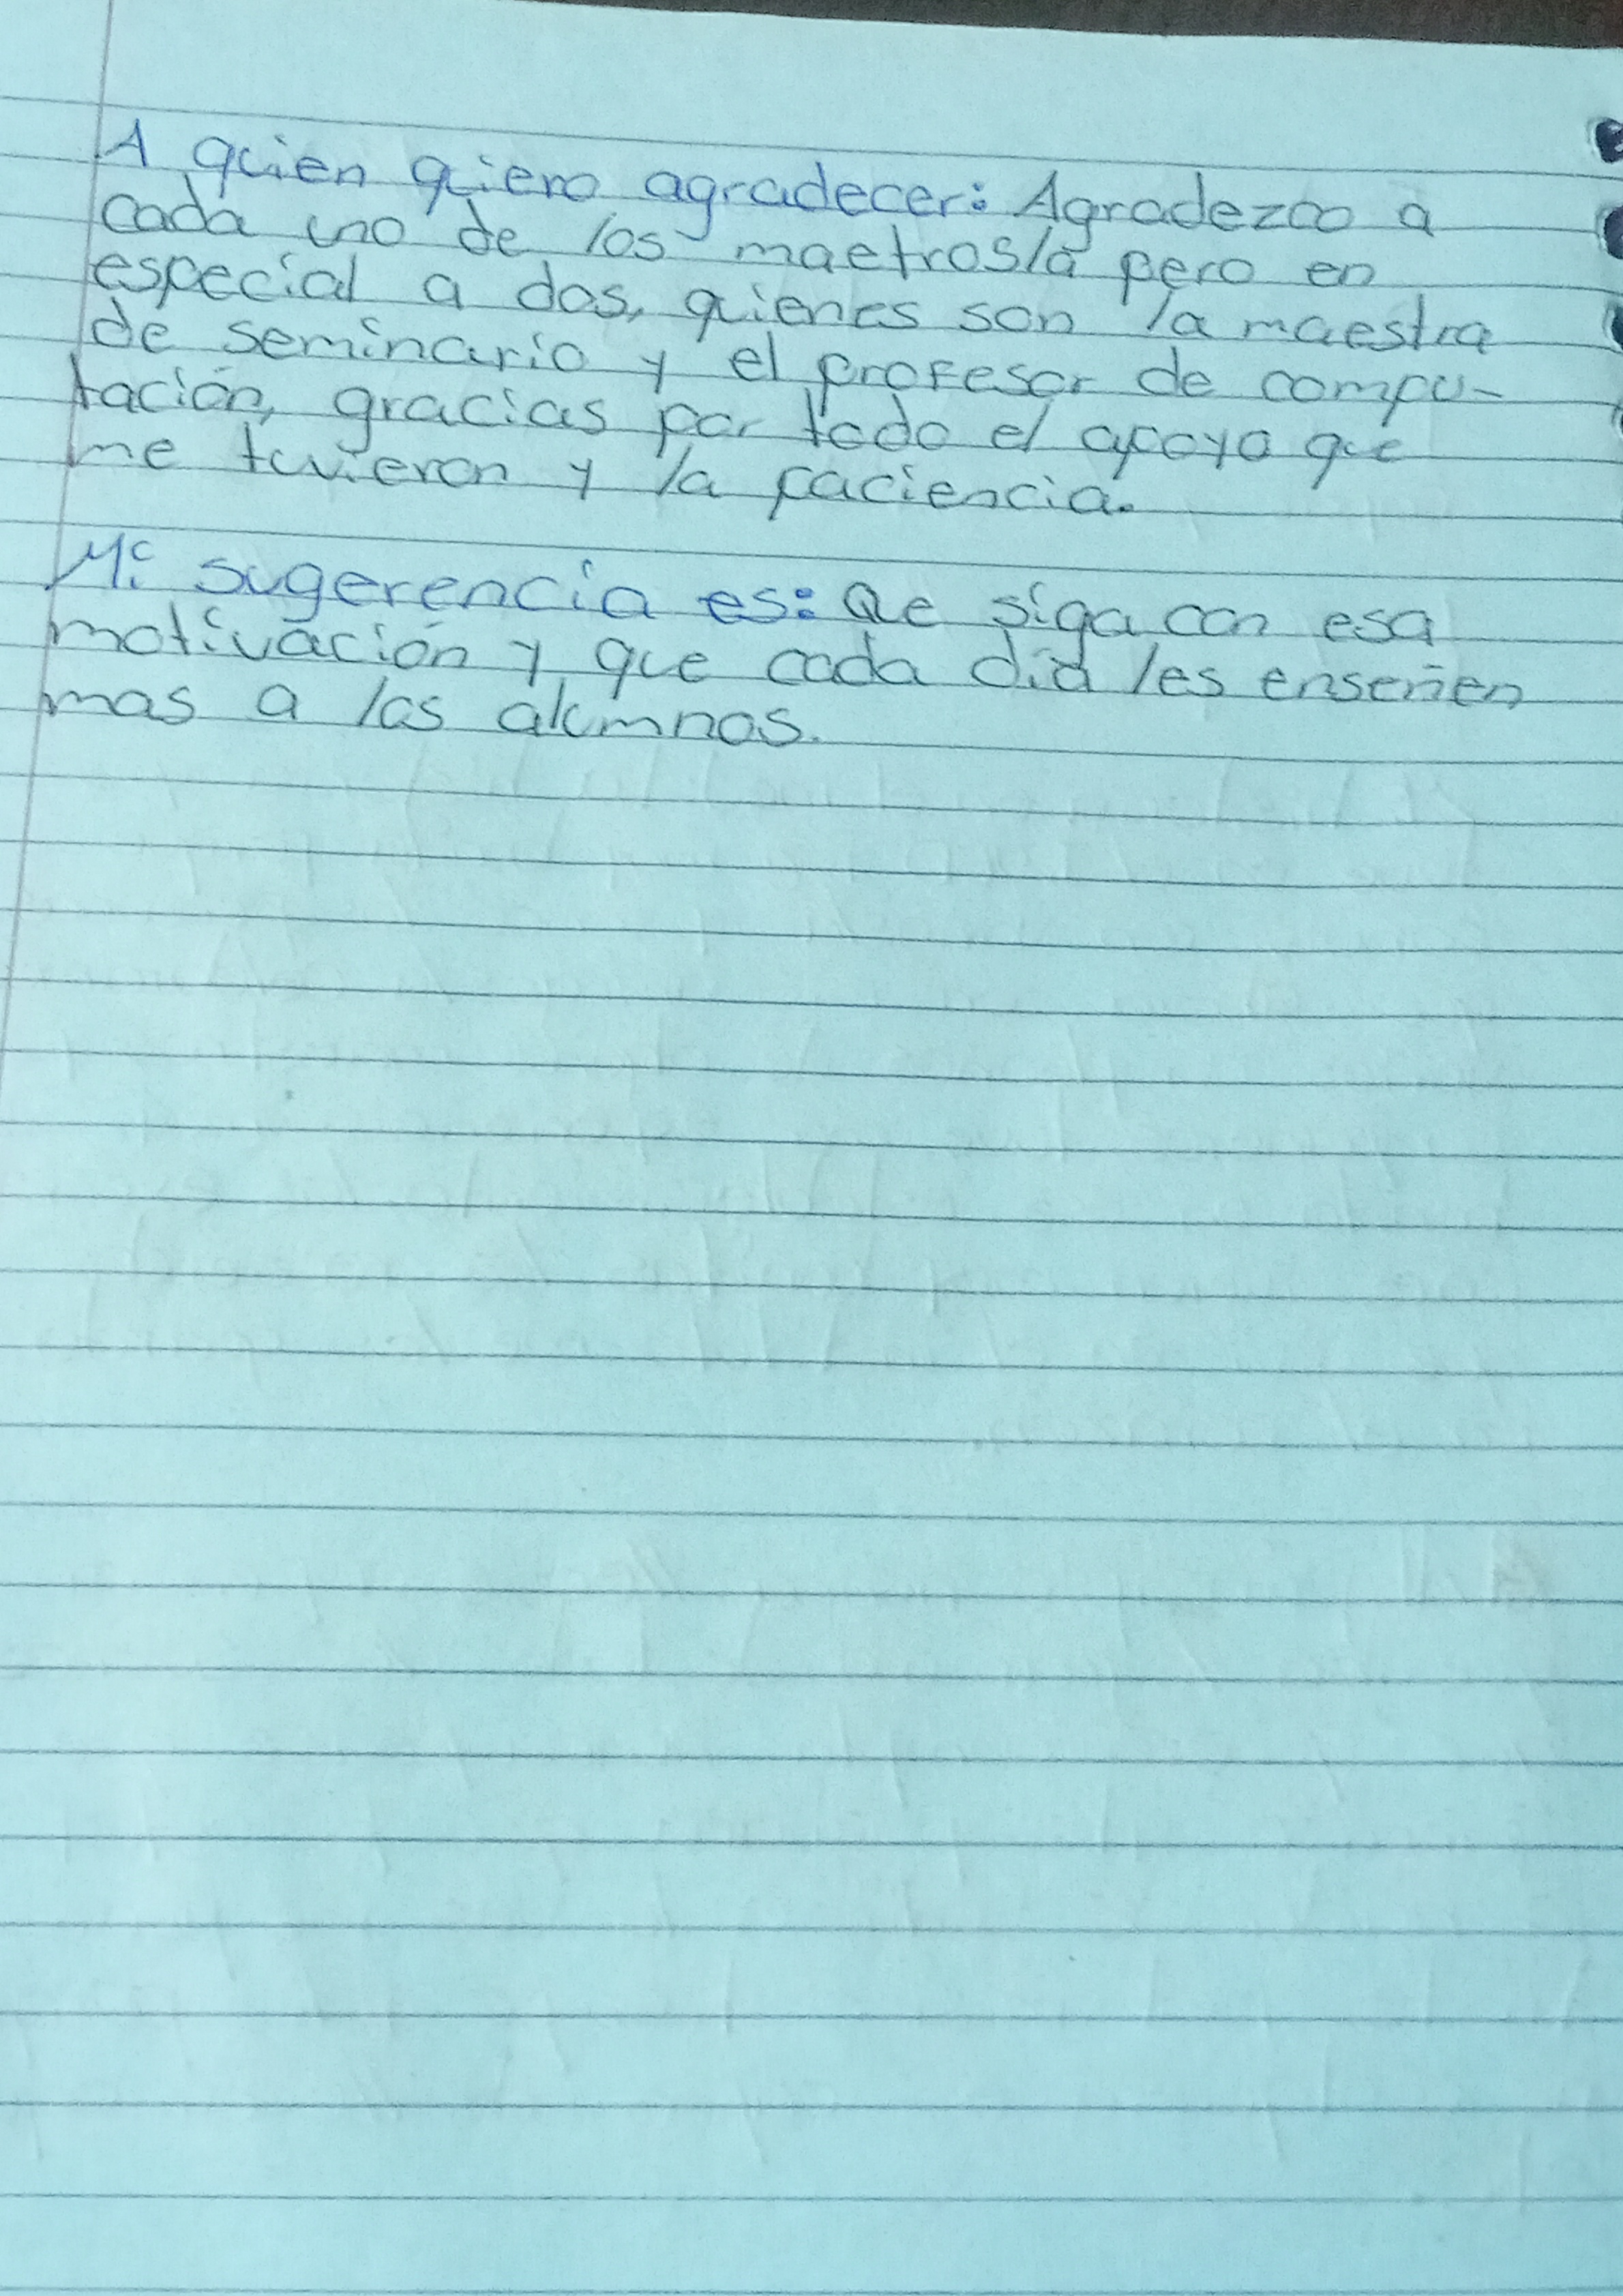 A quien quiero agradecer: Agradezco a
cada uno de los maetros/a pero en
especial a dos, quienes son la maestra
de seminario y el profesor de compu-
tación, gracias por todo el apoyo que
me tuvieron y la paciencia.
Mi sugerencia es: Qe siga con esa
motivación y que cada día les enseñen
mas a los alumnos.